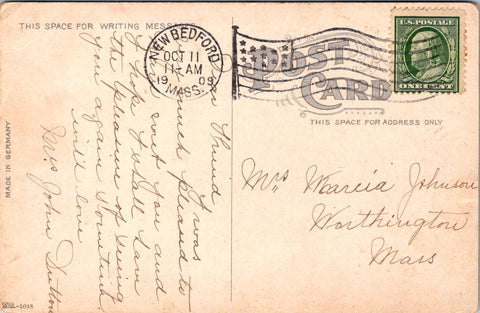 THIS SPACE FOR WRITING MESSAGES
NEW BEDFORD
OCT 11
11 AM
1909
MASS.
POST
CARD
U.S. POSTAGE
ONE CENT
THIS SPACE FOR ADDRESS ONLY
Friend
I was
much pleased to
meet you and
I hope I shall have
the pleasure of seeing
you again sometime
with love
Mrs John Dutton
Mrs Marcia Johnson
Worthington
Mass
MADE IN GERMANY
252-1018